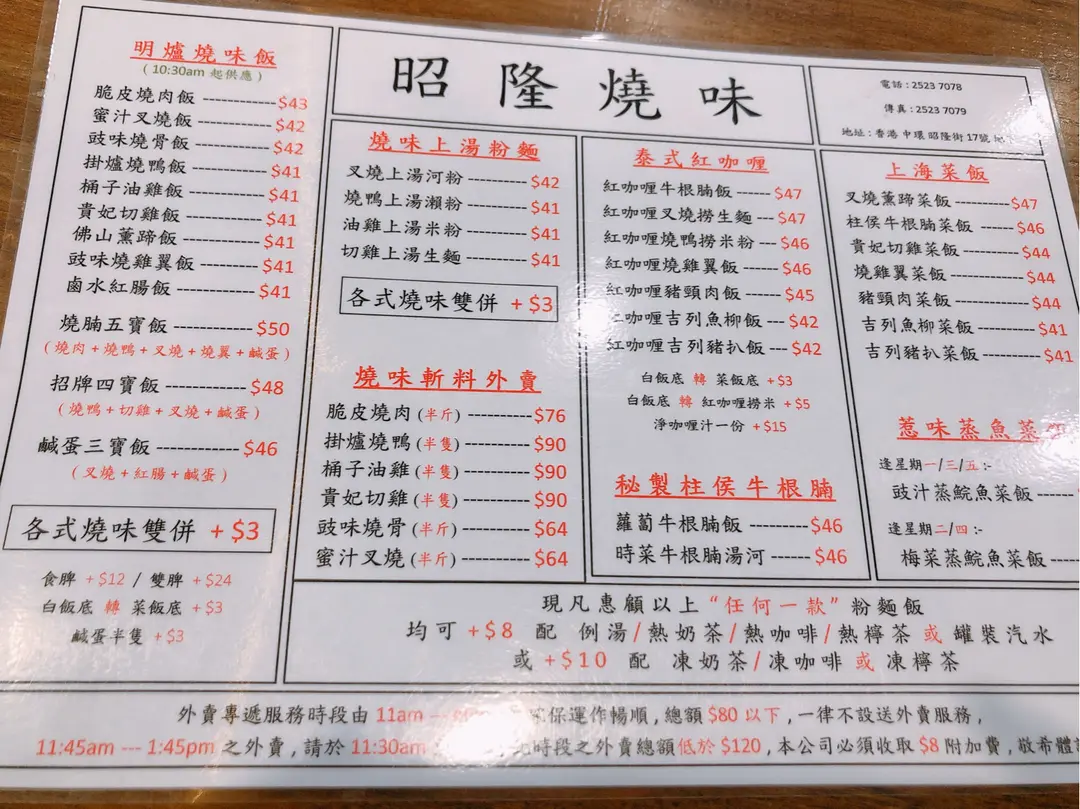 昭隆燒味
電話 : 2523 7078
傳真 : 2523 7079
地址 : 香港 中環 昭隆街 17號
明爐燒味飯
( 10:30am 起供應 )
脆皮燒肉飯 ------------ $43
蜜汁叉燒飯 ------------ $42
豉味燒骨飯 ------------ $42
掛爐燒鴨飯 ------------ $41
桶子油雞飯 ------------ $41
貴妃切雞飯 ------------ $41
佛山薰蹄飯 ------------ $41
豉味燒雞翼飯 --------- $41
鹵水紅腸飯 ------------ $41
燒腩五寶飯 ------------ $50
( 燒肉 + 燒鴨 + 叉燒 + 燒翼 + 鹹蛋 )
招牌四寶飯 ------------ $48
( 燒鴨 + 切雞 + 叉燒 + 鹹蛋 )
鹹蛋三寶飯 ------------ $46
( 叉燒 + 紅腸 + 鹹蛋 )
各式燒味雙併 + $3
食髀 + $12 / 雙髀 + $24
白飯底 轉 菜飯底 + $3
鹹蛋半隻 + $3
燒味上湯粉麵
叉燒上湯河粉 ---------- $42
燒鴨上湯瀨粉 ---------- $41
油雞上湯米粉 ---------- $41
切雞上湯生麵 ---------- $41
各式燒味雙併 + $3
燒味斬料外賣
脆皮燒肉 (半斤) ---------- $76
掛爐燒鴨 (半隻) ---------- $90
桶子油雞 (半隻) ---------- $90
貴妃切雞 (半隻) ---------- $90
豉味燒骨 (半斤) ---------- $64
蜜汁叉燒 (半斤) ---------- $64
泰式紅咖喱
紅咖喱牛根腩飯 ------ $47
紅咖喱叉燒撈生麵 --- $47
紅咖喱燒鴨撈米粉 --- $46
紅咖喱燒雞翼飯 ------ $46
紅咖喱豬頸肉飯 ------ $45
紅咖喱吉列魚柳飯 --- $42
紅咖喱吉列豬扒飯 --- $42
白飯底 轉 菜飯底 + $3
白飯底 轉 紅咖喱撈米 + $5
淨咖喱汁一份 + $15
秘製柱侯牛根腩
蘿蔔牛根腩飯 --------- $46
時菜牛根腩湯河 ------ $46
上海菜飯
叉燒薰蹄菜飯 --------- $47
柱侯牛根腩菜飯 ------ $46
貴妃切雞菜飯 --------- $44
燒雞翼菜飯 ------------ $44
豬頸肉菜飯 ------------ $44
吉列魚柳菜飯 --------- $41
吉列豬扒菜飯 --------- $41
惹味蒸魚菜
逢星期一/三/五 :-
豉汁蒸鯇魚菜飯 -----
逢星期二/四 :-
梅菜蒸鯇魚菜飯 ----
現凡惠顧以上 “任何一款” 粉麵飯
均可 + $8 配 例湯/熱奶茶/熱咖啡/熱檸茶 或 罐裝汽水
或 + $10 配 凍奶茶/凍咖啡 或 凍檸茶
外賣專遞服務時段由 11am --- 保運作暢順 , 總額 $80 以下 , 一律不設送外賣服務 ,
11:45am --- 1:45pm 之外賣 , 請於 11:30am 時段之外賣總額低於 $120 , 本公司必須收取 $8 附加費 , 敬希體